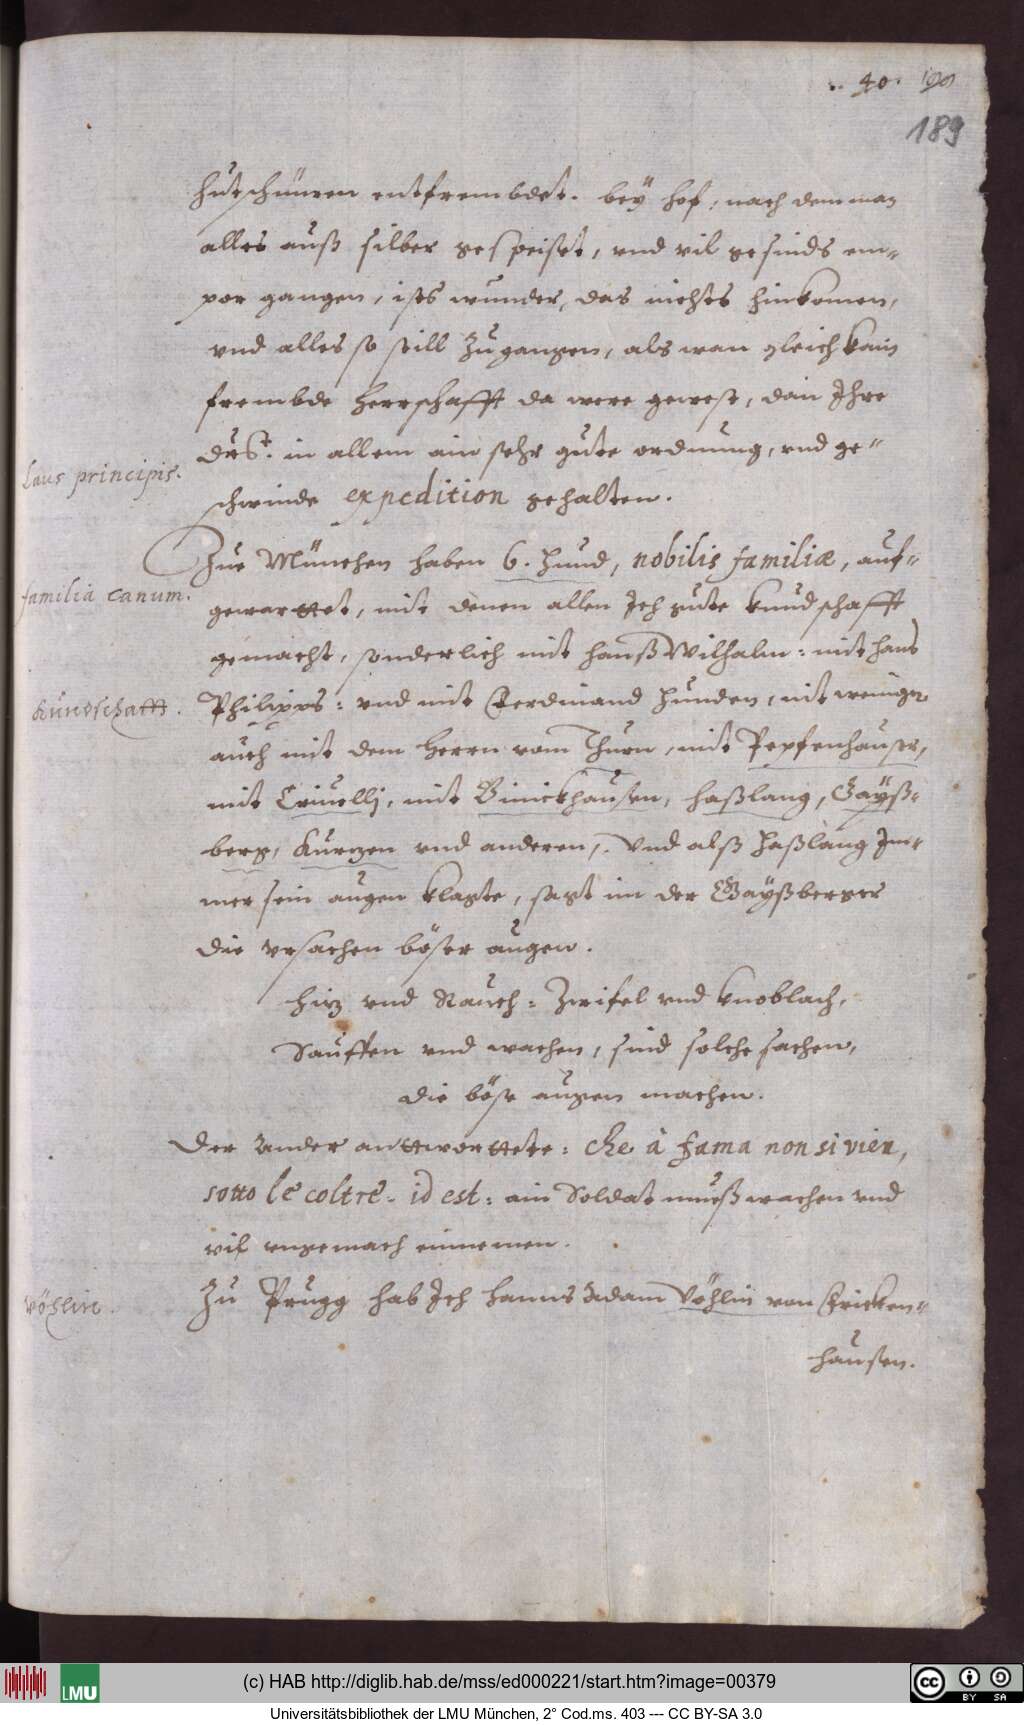 40. 190
189
hutschnüren entfrembdet. bey hof, nach dem man
alles auß silber gespeiset, vnd vil gesinds em-
por gangen, ists wunder, das nichts hinkomen,
vnd alles so still zugangen, als wan gleich kain
frembde Herrschafft da were gewest, dan Ihre
in allem ain sehr gute ordnung, vnd ge-
Laus principis.
schwinde expedition gehalten.
Zue München haben 6. Hund, nobilis familiæ, auf-
familia canum.
gewarttet, mit denen allen Ich gute kundschafft
gemacht, sonderlich mit Hanß Wilhalm: mit Hans
Kundschafft.
Philipps: vnd mit Ferdinand Hunden, nit weniger
auch mit dem Herrn vom Thurn, mit Pepfenhauser,
mit Criuelli, mit Binickhausen, Haßlang, Gayß-
berg, Kurzen vnd anderen. Vnd alß Haßlang Im-
mer sein augen klagte, sagt im der Gayßberger
die vrsachen böser augen.
Hiz vnd Rauch: Zwifel vnd knoblach,
Sauffen vnd wachen, sind solche sachen,
die böse augen machen.
Der Ander anttworttete: che à fama non si vien,
sotto le coltre. id est: ain Soldat mueß wachen vnd
vil vngemach einnemen.
Vöhlin.
Zu Prugg hab Ich Hanns Adam Vöhlin von Fricken-
hausen.
LMU
(c) HAB http://diglib.hab.de/mss/ed000221/start.htm?image=00379
cc BY SA
Universitätsbibliothek der LMU München, 2° Cod.ms. 403 --- CC BY-SA 3.0